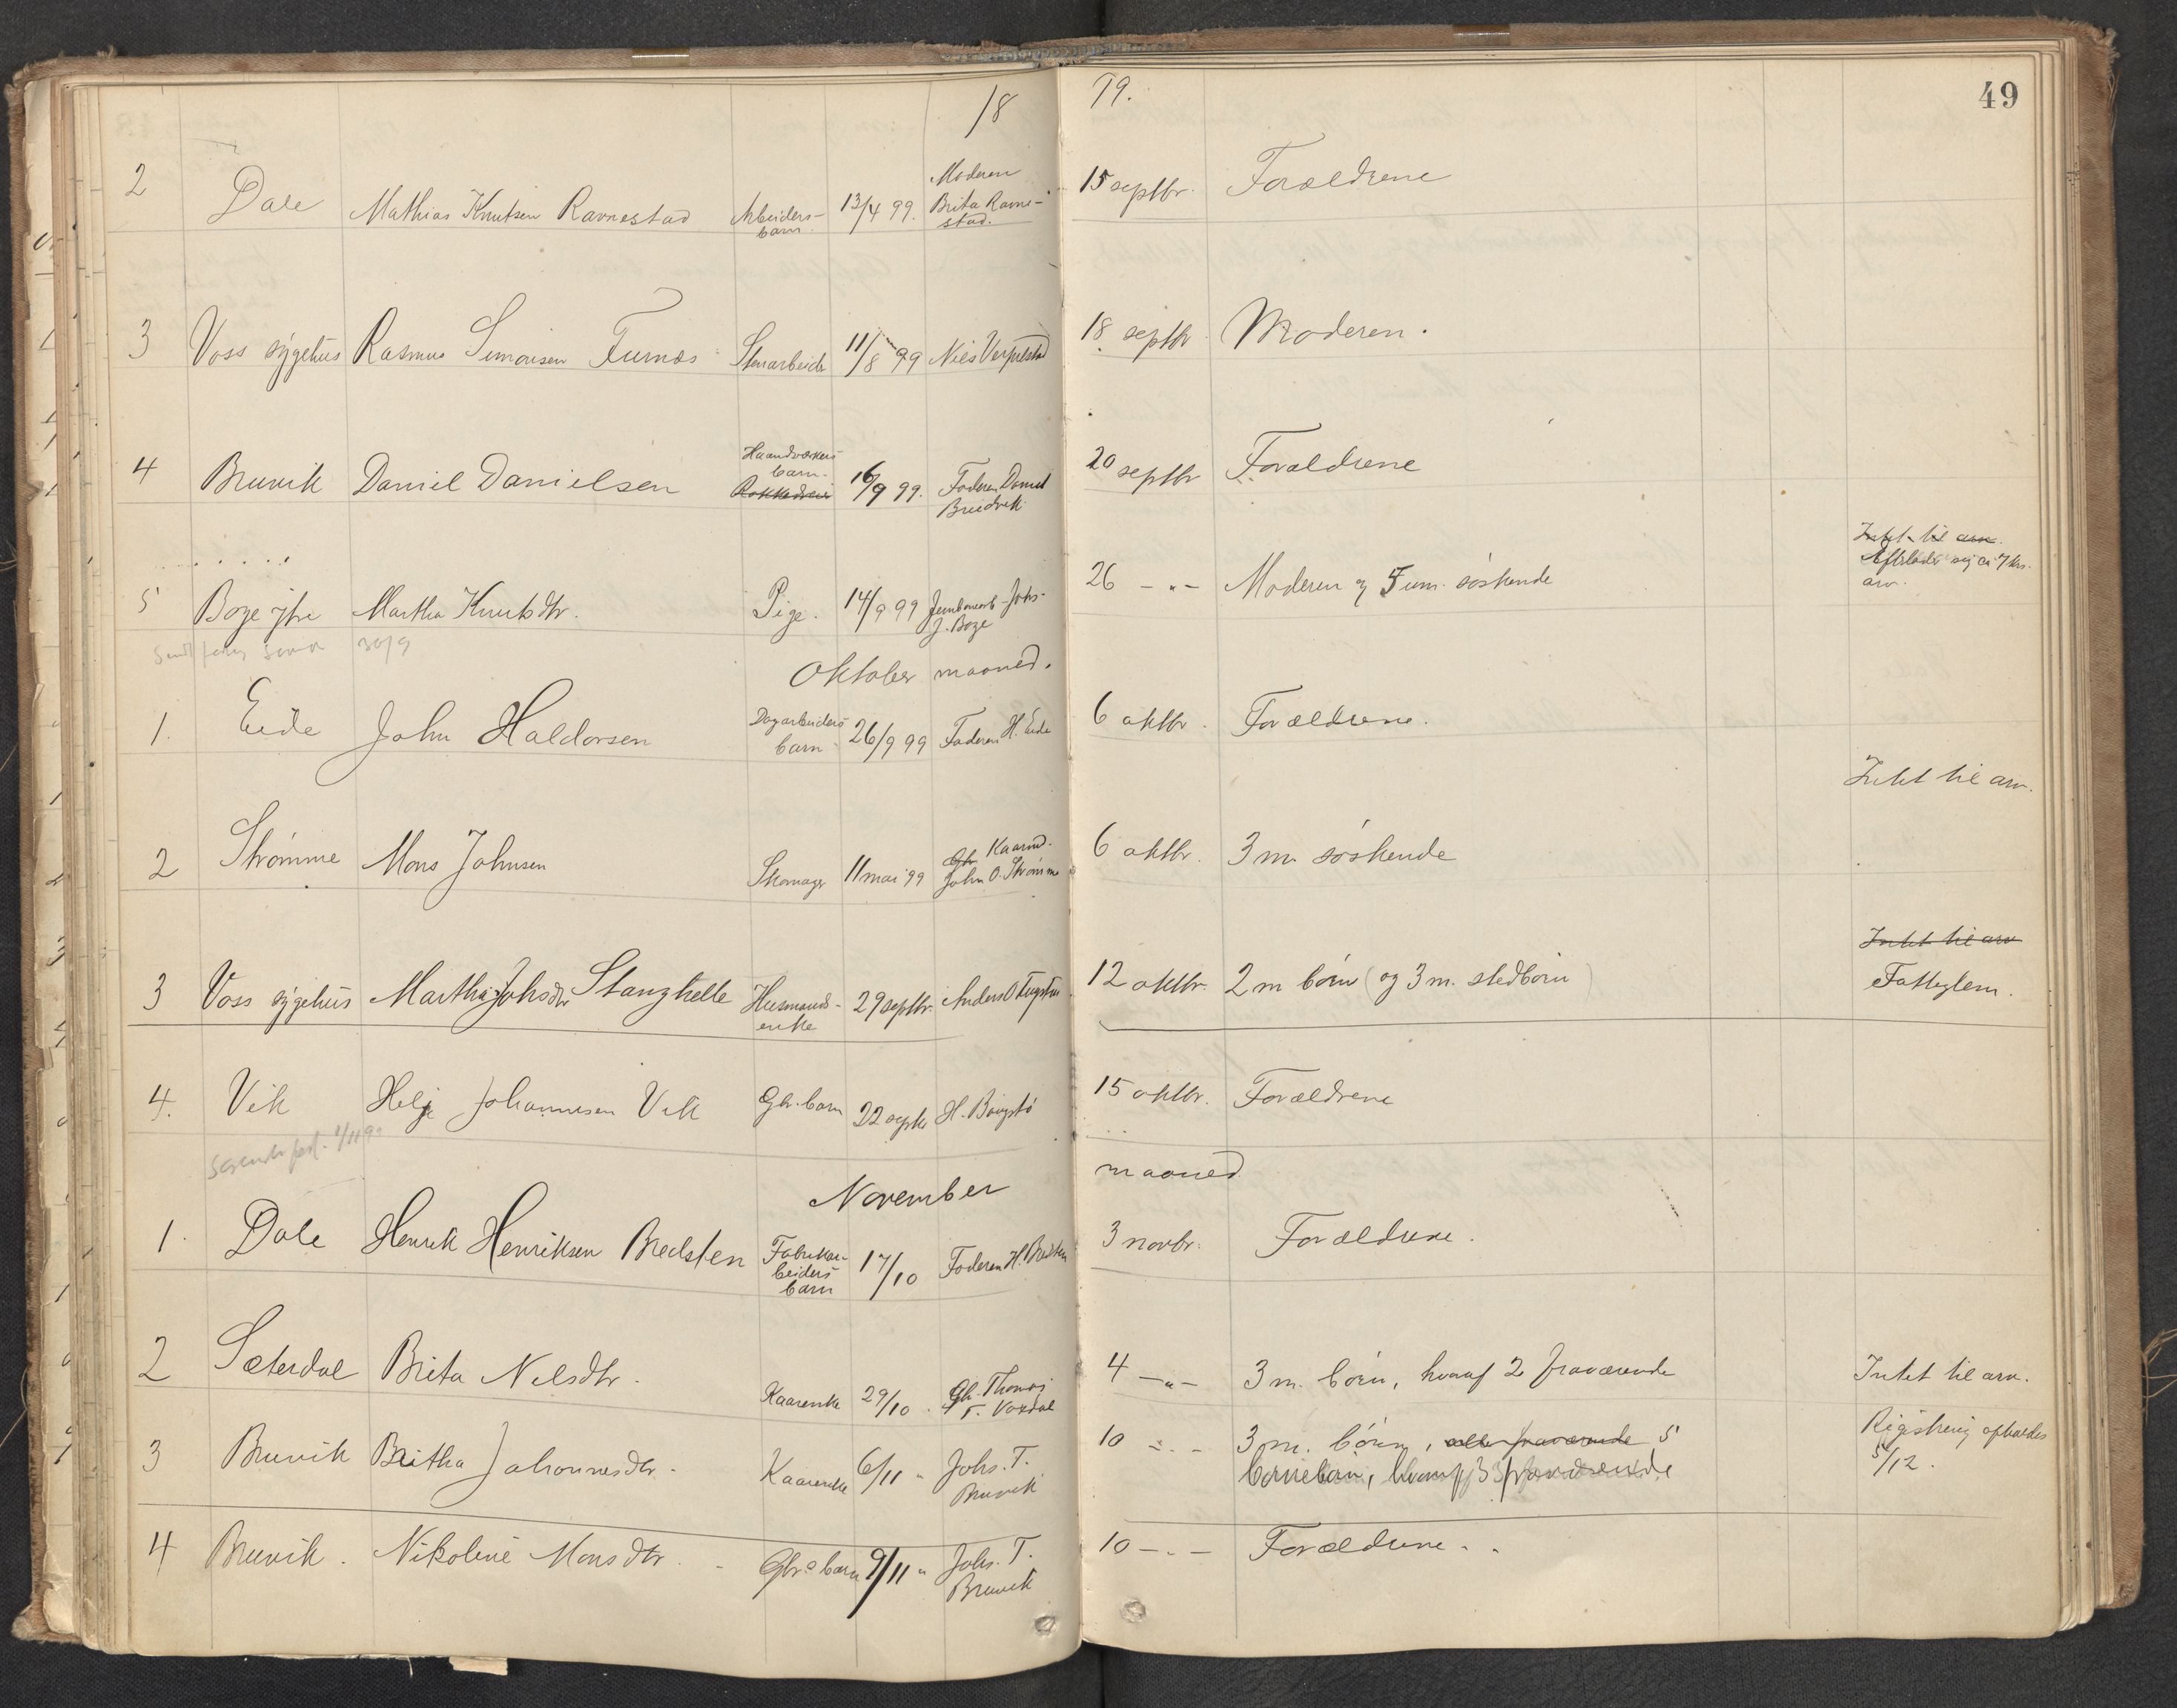 18 99.
49
2 Dale Mathias Knutsen Ravnestad Arbeiders-barn 13/4 99. Moderen Brita Ravne-stad. 15 septbr. Forældrene
3 Voss sygehus Rasmus Simonsen Furnes Stenarbeider 11/8 99 Nils 18 septbr Moderen.
4 Bruvik Daniel Danielsen Haandværkers barn. 16/9 99. Faderen Daniel Bruvik 20 septbr Forældrene
Intet til arv.
Efterlader sig ca 7 krs. arv.
5 Martha Knutsdtr. Pige. 14/9 99 Johs. J. 26 -"- Moderen og 5 um. søskende
30/9
Oktober maaned.
1. Eide John Haldorsen Dagarbeiders barn 26/9 99 Faderen H. Eide 6 oktbr. Forældrene.
Intet til arv.
2 Strømme Mons Johnsen Skomager 11 mai 99 Kaarmd. John O. Strømme 6 oktbr. 3 m. søskende
Intet til arv
3 Voss sygehus Martha Johsdtr Stanghelle Husmands-enke 29 septbr. Anders O 12 oktbr. 2 m børn (og 3 m. stedbørn) Fattiglem.
4. Vik Helje Johannesen Vik Gbr. barn 22 septbr H. 15 oktbr. Forældrene
1/11 99
November maaned
1. Dale Henrik Henriksen Bredsten Fabrikar-beiders barn 17/10 Faderen H. Bredsten 3 novbr. Forældrene.
2 Sæterdal Brita Nilsdtr. Kaarenke 29/10 Gbr. Thomas T. Vaxdal 4 -"- 3 m. børn, hvoraf 2 fraværende Intet til arv.
3 Bruvik Britha Johannesdtr. Kaarenke 6/11 " Johs. T. Bruvik 10 -"- 3 m. børn, alle fraværende 5
børnebørn, hvoraf 3 fraværende Registrering afholdes 5/12.
4 Bruvik. Nikoline Monsdtr. Gbr. barn 9/11 " Johs. T. Bruvik 10 -"- Forældrene.